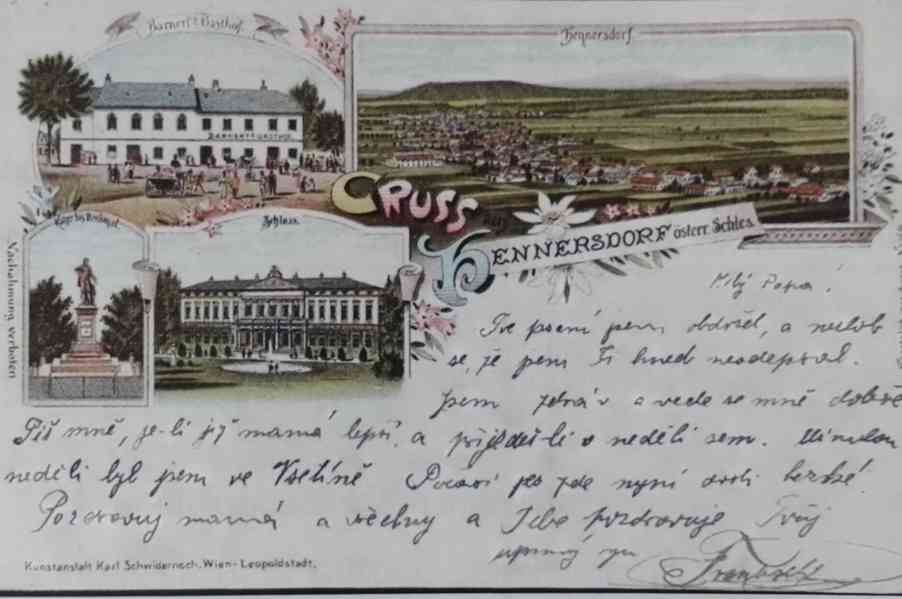 Barnert's Gasthof.
Hennersdorf.
BARNERT'S GASTHOF
GRUSS aus
HENNERSDORF österr. Schles.
Schloss.
Nachahmung verboten
Milý Papa!
psaní jsem obdržel, a nezlob
se, že jsem Ti hned neodepsal.
Jsem zdráv a vede se mně dobře
Piš mně, je-li již mamá lepší, a přijedeš-li v neděli sem. Minulou
neděli byl jsem ve Vsetíně Počasí jes zde nyní hezké.
Pozdravuj mamá a všechny a Tebe pozdravuje Tvůj
upřímný syn
František
Kunstanstalt Karl Schwidernoch, Wien-Leopoldstadt.